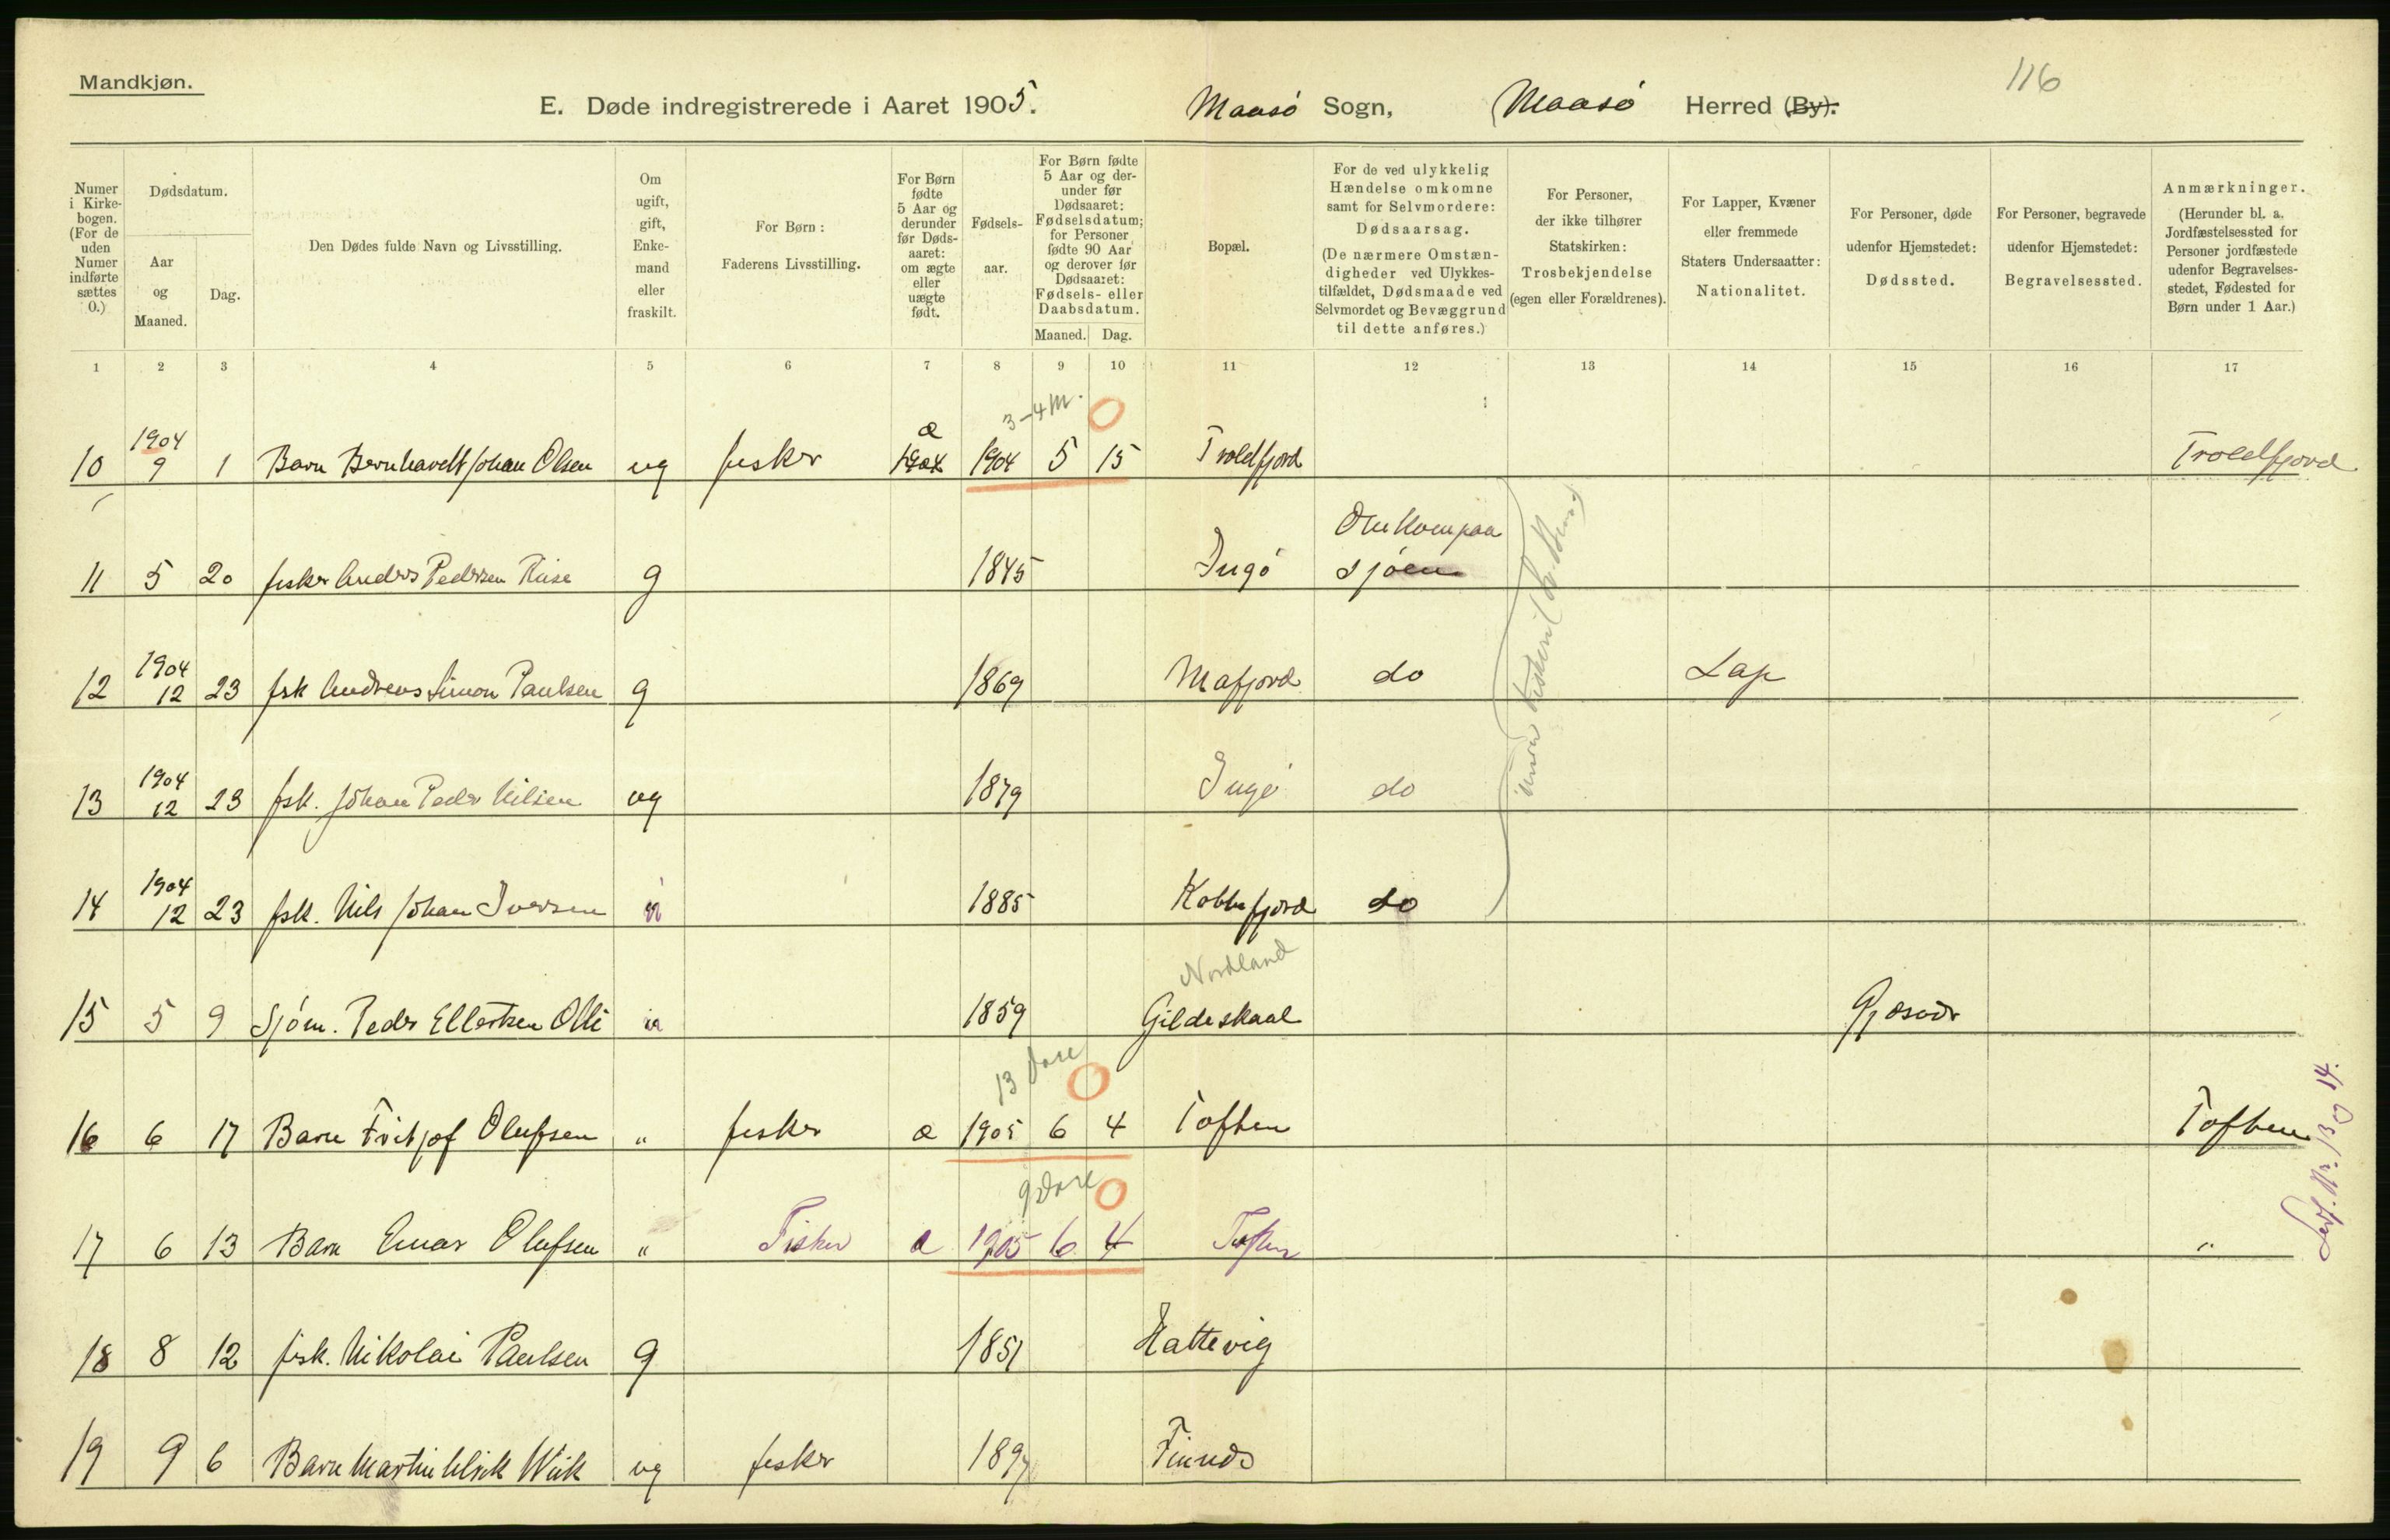 Mandkjøn.
116
E. Døde indregistrerede i Aaret 1905. Maasö Sogn, Maasö Herred (By).
Numer i Kirkebogen. (For de uden Numer indførte sættes 0.)
Dødsdatum.
Aar og Maaned.
Dag.
Den Dødes fulde Navn og Livsstilling.
Om ugift, gift, Enkemand eller fraskilt.
For Børn: Faderens Livsstilling.
For Børn fødte 5 Aar og derunder før Dødsaaret: om ægte eller uægte født.
Fødselsaar.
For Børn fødte 5 Aar og derunder før Dødsaaret: Fødselsdatum; for Personer fødte 90 Aar og derover før Dødsaaret: Fødsels- eller Daabsdatum.
Maaned. Dag.
Bopæl.
For de ved ulykkelig Hændelse omkomne samt for Selvmordere: Dødsaarsag. (De nærmere Omstændigheder ved Ulykkestilfældet, Dødsmaade ved Selvmordet og Bevæggrund til dette anføres.)
For Personer, der ikke tilhører Statskirken: Trosbekjendelse (egen eller Forældrenes).
For Lapper, Kvæner eller fremmede Staters Undersaatter: Nationalitet.
For Personer, døde udenfor Hjemstedet: Dødssted.
For Personer, begravede udenfor Hjemstedet: Begravelsessted.
Anmærkninger. (Herunder bl. a. Jordfæstelsessted for Personer jordfæstede udenfor Begravelsesstedet, Fødested for Børn under 1 Aar.)
1 2 3 4 5 6 7 8 9 10 11 12 13 14 15 16 17
3-4 M.
10 1904 9 1 Barn Bernhardt Johan Olsen ug fisker æ 1904 1904 5 15 Troldfjord Troldfjord
11 5 20 fisker Anders Pedersen g 1845 Ingö Omkom paa Sjöen
12 1904 12 23 fsk Andreas Simon Paulsen g 1869 Mafjord do Lap
13 1904 12 23 fsk. Johan Peder Nilsen ug 1879 Ingö do
14 1904 12 23 fsk. Nils Johan Iversen " 1885 Kobbefjord do
Nordland
15 5 9 Sjöm. Peder Ellertsen Olli " 1859 Gildeskaal Gjæsvær
13 Dage
16 6 17 Barn Fritjof Olufsen " fisker æ 1905 6 4 Toften Toften
9 Dage
17 6 13 Barn Einar Olufsen " Fisker æ 1905 6 4 Toften "
18 8 12 fisk. Nikolai Paulsen g 1851 Hattevig
19 9 6 Barn Martin Ulrik Wiik ug fisker 1897